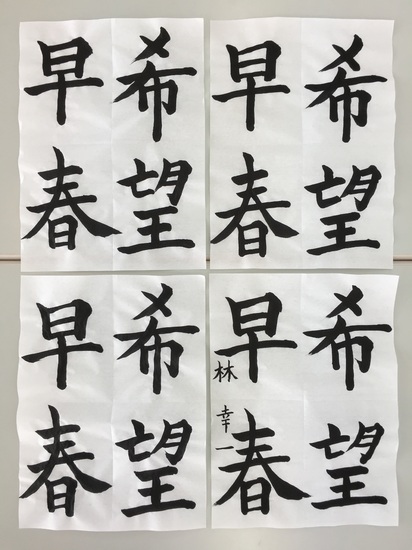 希望
早春
希望
早春
希望
早春
希望
早春
林 幸一